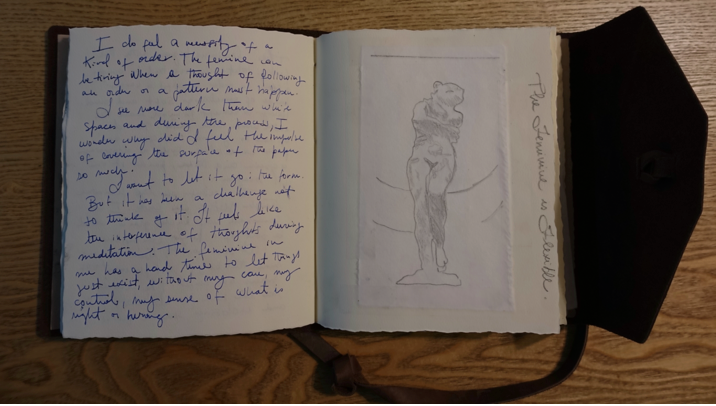 I do feel a necessity of a
kind of order. The feminine can
be tiring when a thought of following
an order or a pattern must happen.
I see more dark than white
spaces and during the process, I
wonder why did I feel the impulse
of covering the surface of the paper
so much.
I want to let it go: the form.
But it has been a challenge not
to think of it. It feels like
the interference of thoughts during
meditation. The feminine in
me has a hard time to let things
just exist, without my care, my
control, my sense of what is
right or wrong.
The Feminine is Flexible.